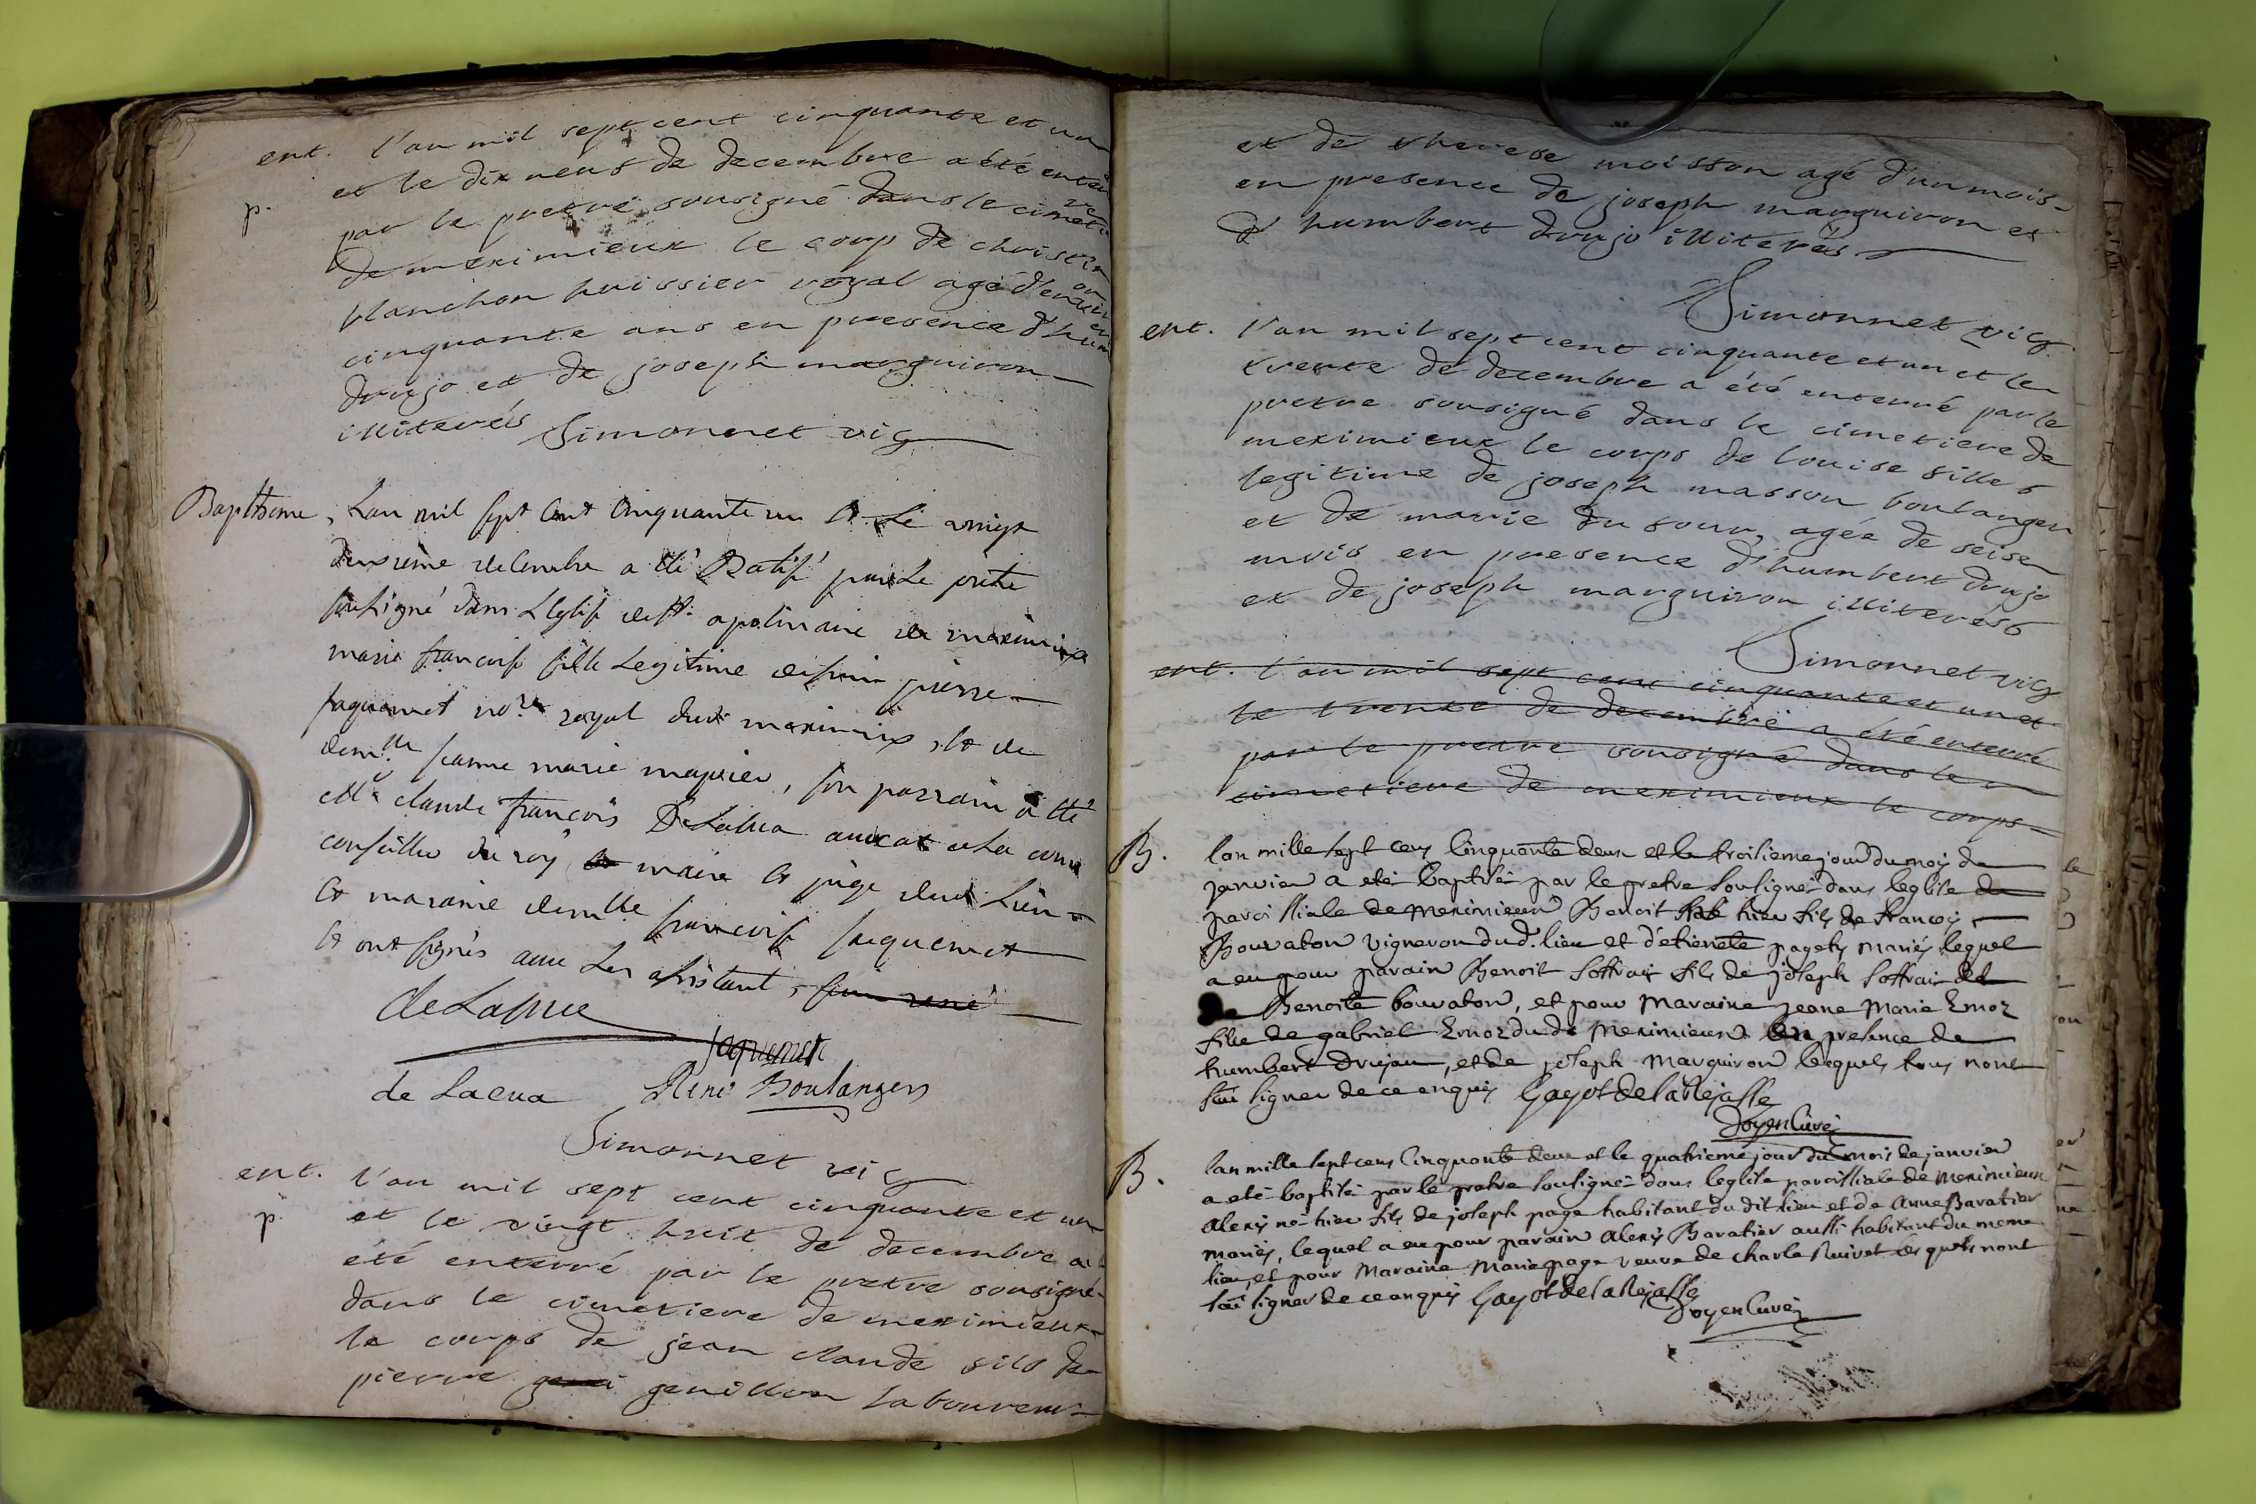 ent. l'an mil sept cent cinquante et un
p. et le dix neuf de decembre a été enterré
par le pretre sousigné dans le cimetiere
de meximieux le corp de christ
planchon huissier royal agé d'environ
cinquante ans en presence d'hum
drujo et de joseph marguiron
illiterés Simonnet vic
Baptheme, Lan mil sept cent Cinquante un et Le vingt
deuxieme decembre a ete Batisé par Le pretre
soussigné dans L'Eglise de St. apolinaire de meximieux
marie francoise fille Legitime de sieur pierre
jaquemet no.re royal dud. meximieux, et de
dem.lle jeanne marie majorier, son parrain a été
Mr. claude françois DeLacua avocat a La cour
conseiller du roy maire et juge dud. Lieu
et maraine demlle francoise jaquemet
et ont signés avec Les assistant,
deLacua
jaquemet
de Lacua René Boulangers
Simonnet vic
ent. l'an mil sept cent cinquante et un
p. et le vingt huit de decembre a
été enterré par le pretre sousigné
dans le cimetiere de meximieux
le corps de jean claude fils de
pierre genillon laboureur
et de therese moisson agé d'un mois
en presence de joseph marguiron et
d'humbert drujo illiterés
Simonnet vic
ent. l'an mil sept cent cinquante et un et le
trente de decembre a été enterré par le
pretre sousigné dans le cimetiere de
meximieux le corps de louise fille
legitime de joseph masson boulanger
et de marie du four, agée de seise
mois en presence d'humbert drujo
et de joseph marguiron illiterés
Simonnet vic
ent. l'an mil sept cent cinquante et un et
le trente de decembre a été enterré
par le pretre sousigné dans le
cimetiere de meximieux le corps
B. lan mille sept cens Cinquante deux et le troisieme jour du mois de
janvier a eté baptisé par le pretre soussigné dans leglise de
paroissiale de meximieux Benoit né hier fils de francois
Bouvaton vigneron dud. lieu et d'etienette pagets mariés lequel
a eu pour parain Benoit soffrais fils de joseph soffrais et
de Benoite bouvaton, et pour Maraine jeane Marie Emoz
fille de gabriel Emoz du dt Meximieux en presence de
humbert drujou, et de joseph Marguiron lesquels tous nont
sçu signer de ce enquis Gayot de la Rejasse
Doyen Curé
B. lan mille sept cens Cinquante deux et le quatrieme jour du mois de janvier
a eté baptisé par le pretre soussigné dans leglise paroissiale de Meximieux
Alexis né hier fils de joseph page habitant du dit lieu et de Anne Baratier
mariés, lequel a eu pour parain Alexis Baratier aussi habitant du meme
lieu, et pour Maraine Marie page veuve de charle Ruivet lesquels nont
sçu signer de ce enquis Gayot de la Rejasse
Doyen Curé